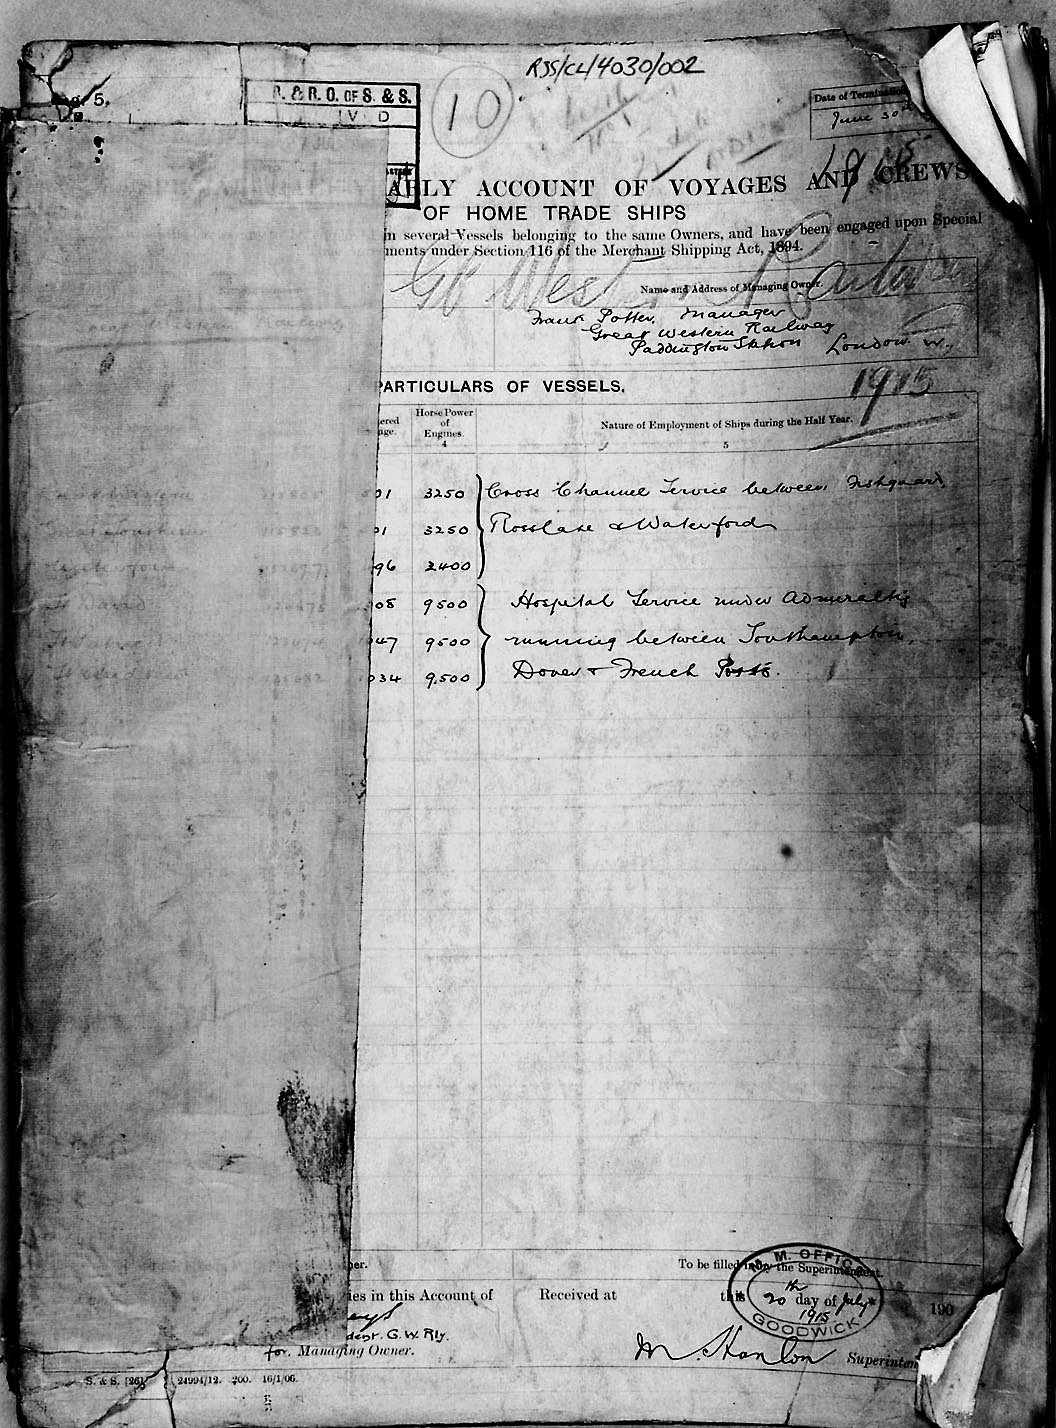 RSS/CL/4030/002
10
5.
R. O. OF S. & S.
V D
Date of Termination
June 30th
1915
ARLY ACCOUNT OF VOYAGES AND CREWS
OF HOME TRADE SHIPS
in several Vessels belonging to the same Owners, and have been engaged upon Special
ments under Section 116 of the Merchant Shipping Act, 1894.
Gt Western Railway
Name and Address of Managing Owner.
Frank Potter, Manager
Great Western Railway
Paddington Station London W.
PARTICULARS OF VESSELS.
1915
ered
age.
Horse Power
of
Engines.
4
Nature of Employment of Ships during the Half Year.
5
01 3250 Cross Channel Service between Fishguard
01 3250 Rosslare & Waterford
96 2400
08 9500 Hospital Service under Admiralty
47 9500 running between Southampton,
034 9,500 Dover & French Ports.
ner.
To be filled in by the Superintendent.
ies in this Account of
Received at
this 20th day of July 1915
190
M. M. OFFICE
GOODWICK
dent. G. W. Rly.
for Managing Owner.
M. Hanlon
Superinten
S. & S. [26] 24994/12. 200. 16/1/06.